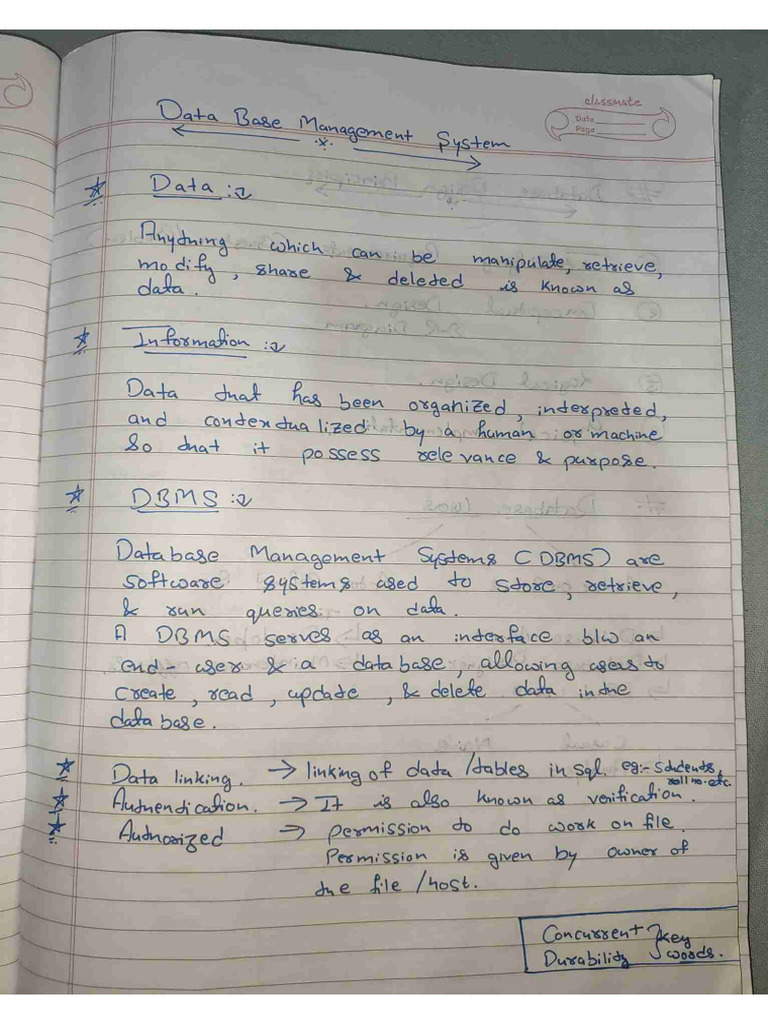 classmate
Date
Page
Data Base Management System
* Data :-
Anything which can be manipulate, retrieve,
modify, share & deleted is known as
data.
* Information :-
Data that has been organized, interpreted,
and contextualized by a human or machine
so that it possess relevance & purpose.
* DBMS :-
Database Management Systems (DBMS) are
software systems used to store, retrieve,
& run queries on data.
A DBMS serves as an interface b/w an
end-user & a database, allowing users to
create, read, update, & delete data in the
database.
* Data linking. → linking of data/tables in sql. eg:- students,
roll no. etc.
* Authentication. → It is also known as verification.
* Authorized → permission to do work on file.
Permission is given by owner of
the file/host.
Concurrent } key
Durability } words.